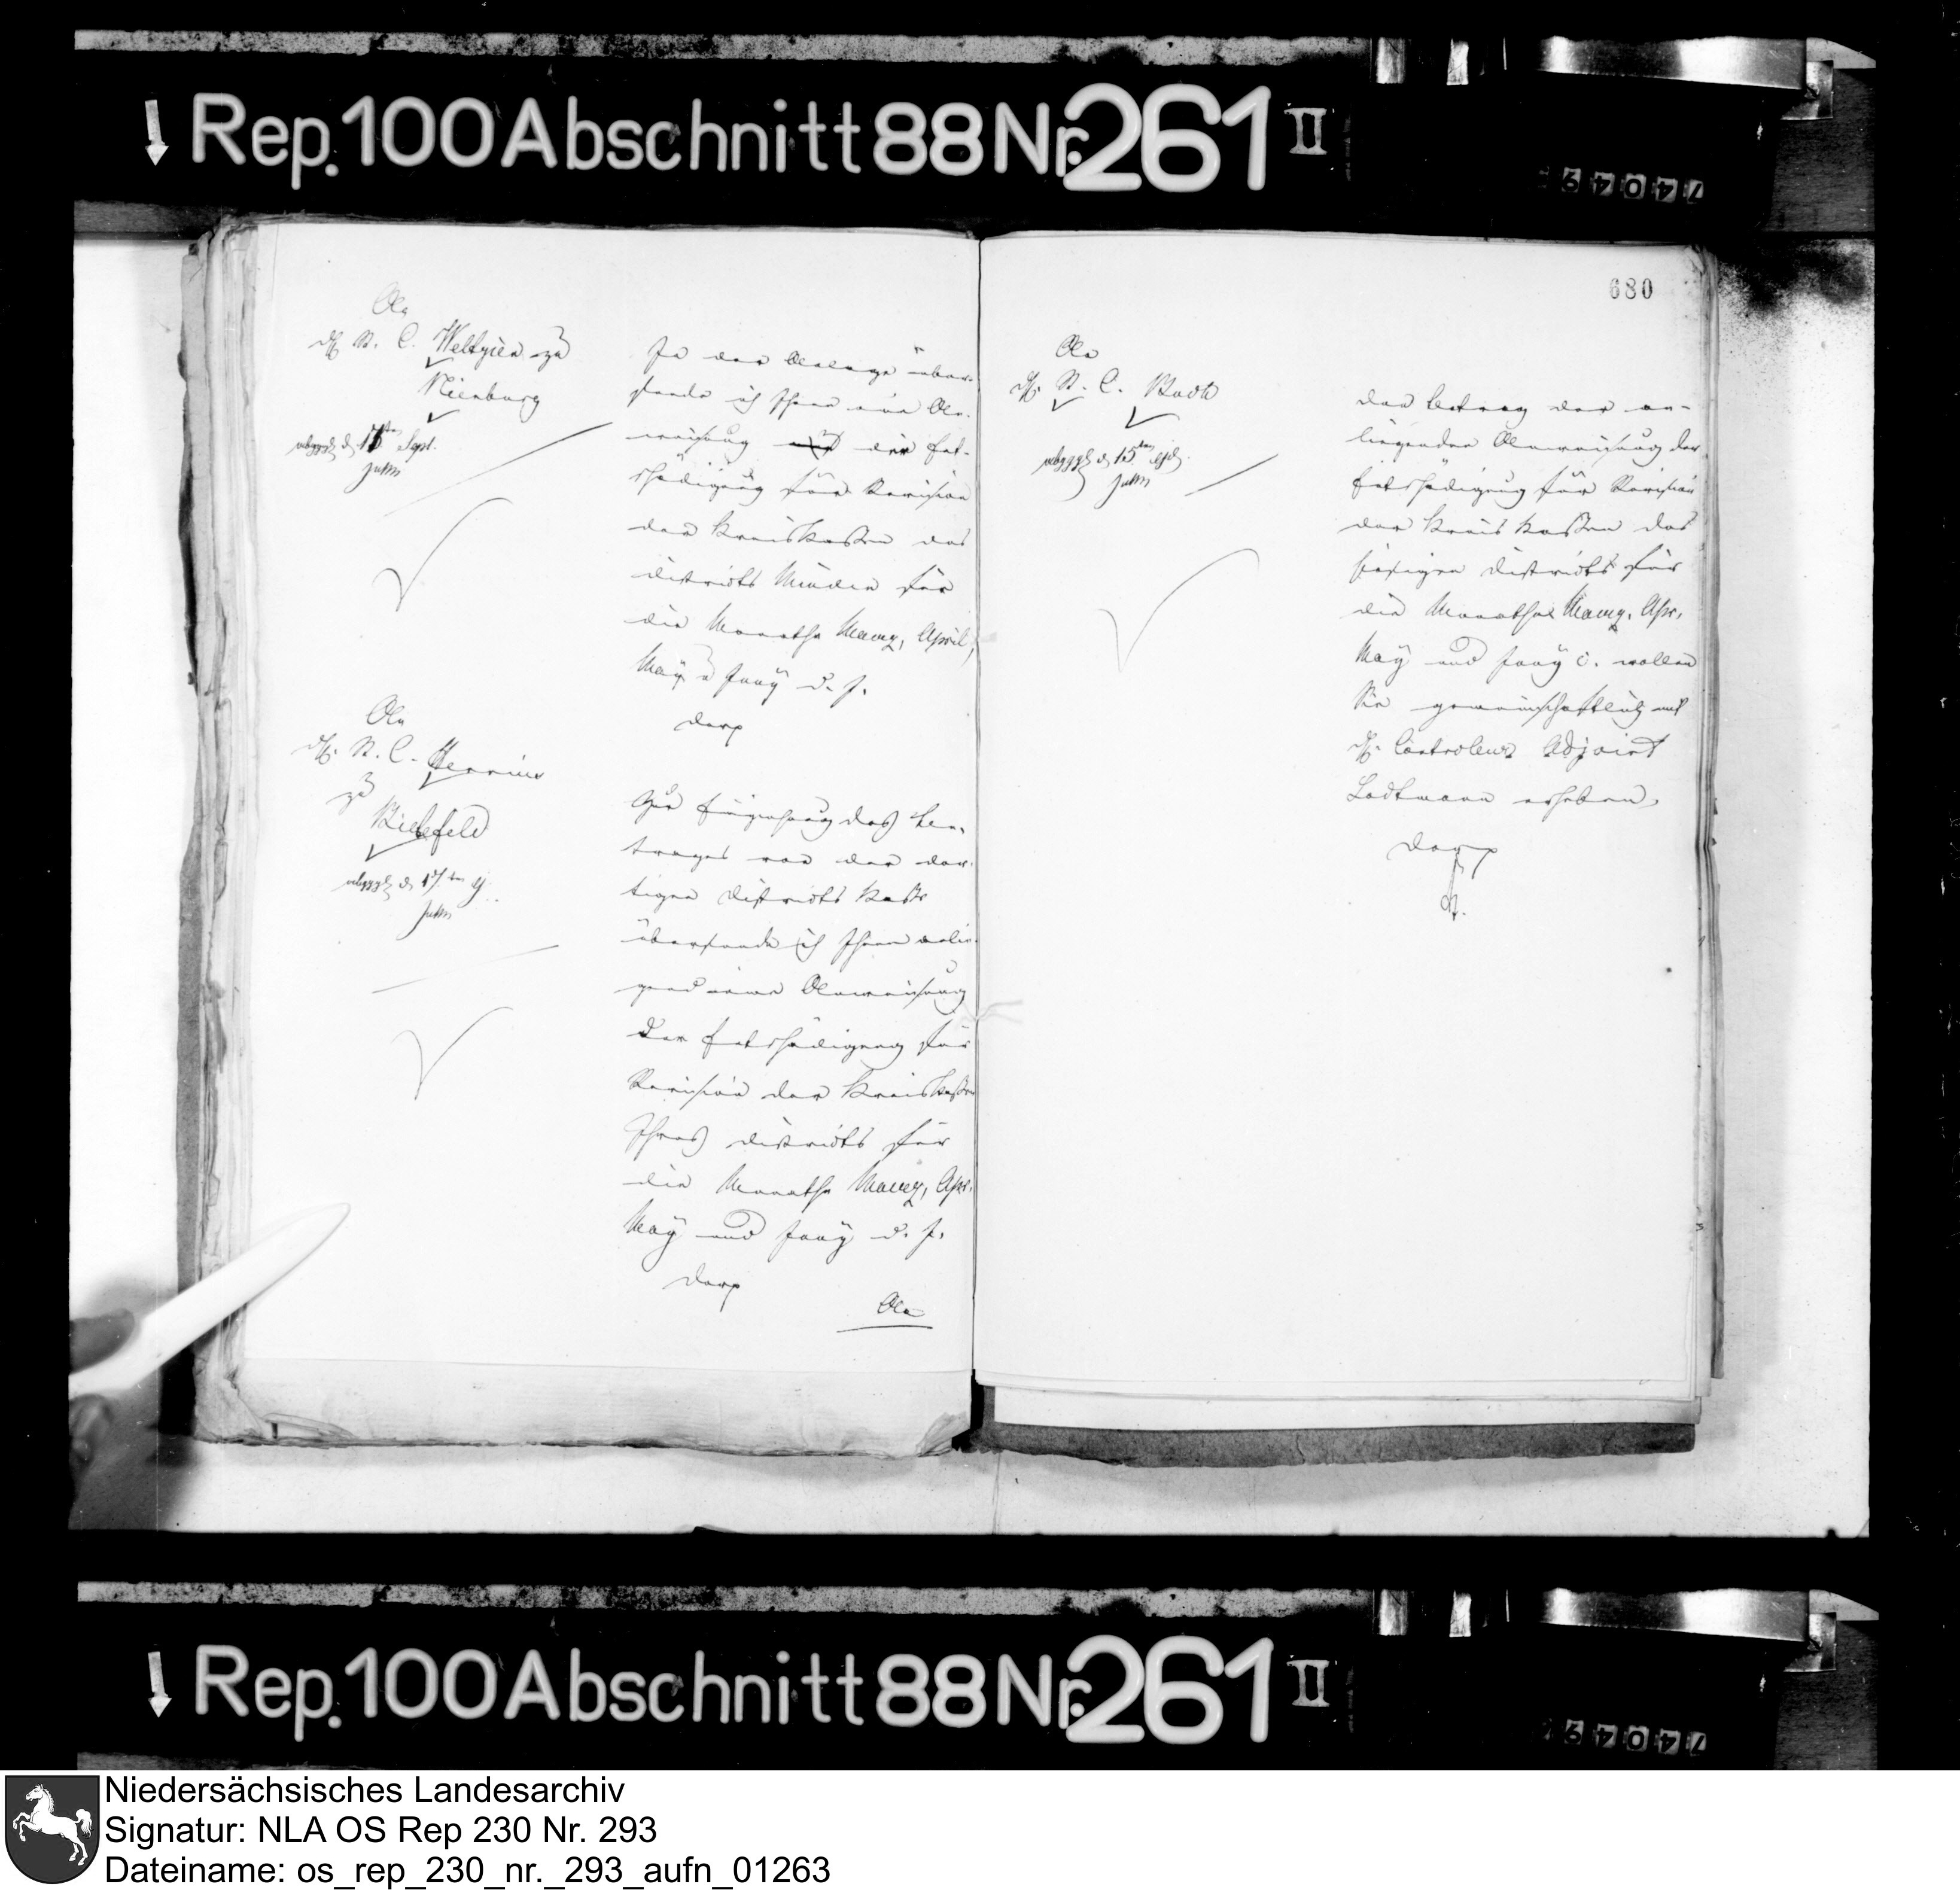 Rep. 100 Abschnitt 88 Nr. 261 II
74049
An
H. St. C. Weltzien zu
Nienburg
abgegb d 15ten Sept.
In der Anlage über-
sende ich Ihnen eine An-
weisung der Ent-
schädigung für Revision
der Kreiskassen des
Districts Minden für
die Monathe Maerz, April,
May u Juny d. J.
Derp
An
H. St. C.
zu
Bielefeld
abgegb d 17ten
Zur Einziehung des Be-
trages von der dor-
tigen Districts Kasse
übersende ich Ihnen anlie-
gend eine Anweisung
der Entschädigung für
Revision der Kreiskassen
Ihres Districts für
die Monathe Maerz, Apr.
May und Juny d. J.
Derp
An
680
An
H. St. C. Bode
abgegb d 15ten
Den Betrag der an-
liegenden Anweisung der
Entschädigung für Revision
der Kreis Kassen des
hiesigen Districts für
die Monathe Maerz, Apr.
May und Juny c. wollen
Sie gemeinschaftlich mit
H. Controleur Adjoint
Lodtmann erheben.
Derp
Rep. 100 Abschnitt 88 Nr. 261 II
74049
Niedersächsisches Landesarchiv
Signatur: NLA OS Rep 230 Nr. 293
Dateiname: os_rep_230_nr._293_aufn_01263